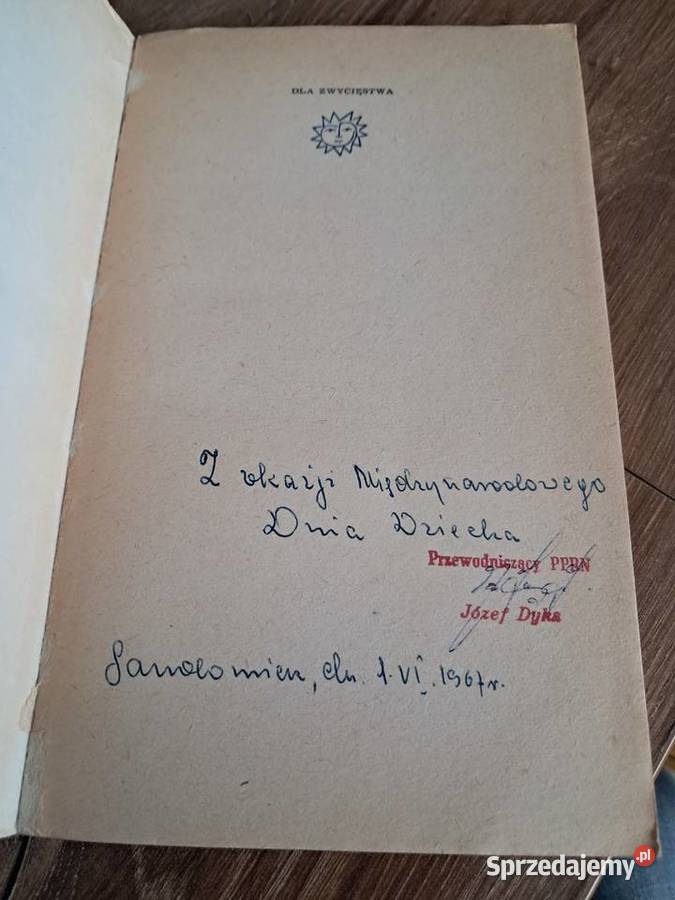 DLA ZWYCIĘSTWA
Z okazji Międzynarodowego
Dnia Dziecka
Przewodniczący PPRN
Józef Dyka
Sandomierz, dn. 1.VI.1967r.
Sprzedajemy.pl